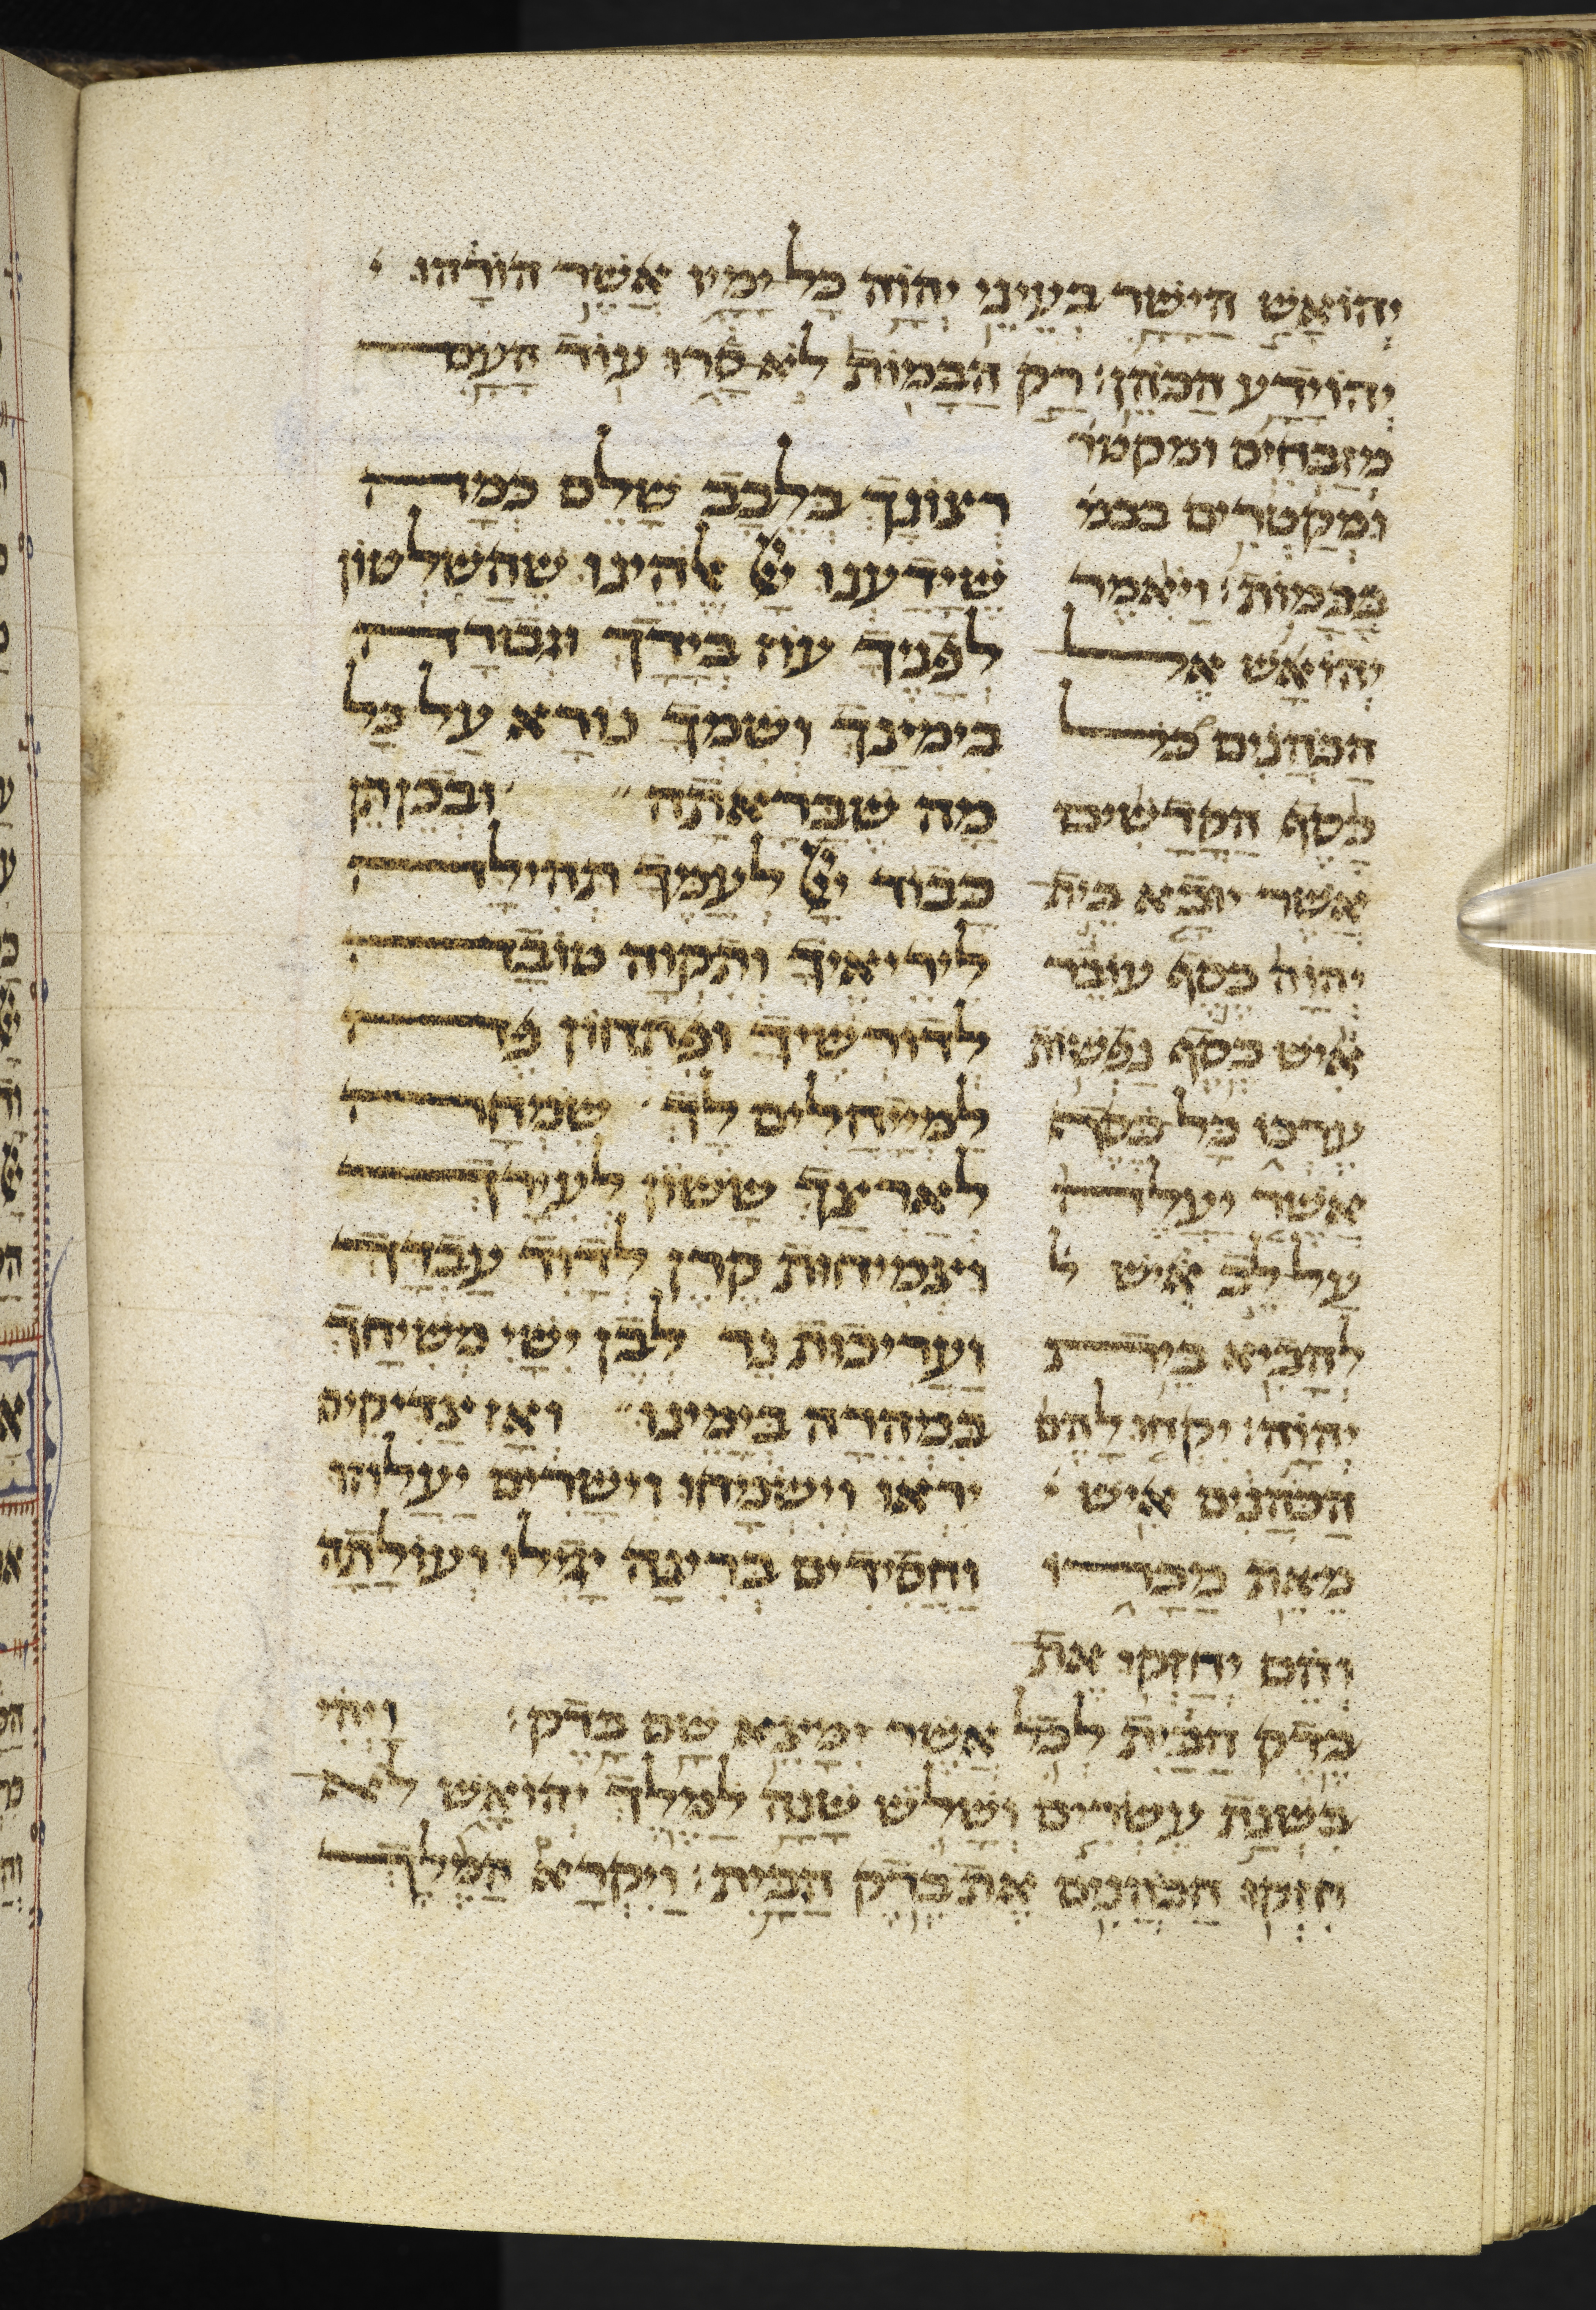 יהואש הישר בעיני יהוה כל ימיו אשר הורהו
יהוידע הכהן׃ רק הבמות לא סרו עוד העם
מזבחים ומקטר
ומקטרים בבמ
בבמות׃ ויאמר
יהואש אל
הכהנים כל
כסף הקדשים
אשר יובא בית
יהוה כסף עובר
איש כסף נפשות
ערכו כל כסף
אשר יעלה
על לב איש ל
להביא בית
יהוה׃ יקחו להם
הכהנים איש
מאת מכרו
והם יחזקו את
בדק הבית לכל אשר ימצא שם בדק׃ ויהי
בשנת עשרים ושלש שנה למלך יהואש לא
חזקו הכהנים את בדק הבית׃ ויקרא המלך
רצונך בלבב שלם כמה
שידענו יי אלהינו שהשלטון
לפניך עוז בידך וגבורה
בימינך ושמך נורא על כל
מה שבראתה ובכן תן
כבוד יי לעמך תהילה
ליריאיך ותקוה טובה
לדורשיך ופתחון פה
למייחלים לך שמחה
לארצך ששון לעירך
וצמיחות קרן לדויד עבדך
ועריכות נר לבן ישי משיחך
במהרה בימינו ואז צדיקים
יראו וישמחו וישרים יעלוזו
וחסידים ברינה יגילו ועולתה